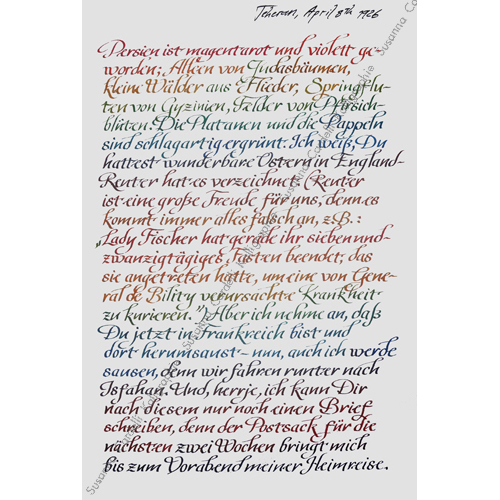 Teheran, April 8th 1926
Persien ist magentarot und violett ge-
worden; Alleen von Judasbäumen,
kleine Wälder aus Flieder, Springflu-
ten von Gyzinien, Felder von Pfirsich-
blüten. Die Platanen und die Pappeln
sind schlagartig ergrünt. Ich weiß, Du
hattest wunderbare Ostern in England-
Reuter hat es verzeichnet. (Reuter
ist eine große Freude für uns, denn es
kommt immer alles falsch an, z.B.:
„Lady Fischer hat gerade ihr sieben und-
zwanzigtägiges Fasten beendet; das
sie angetreten hatte, um eine von Gene-
ral de Bility verursachte Krankheit
zu kurieren.") Aber ich nehme an, daß
Du jetzt in Frankreich bist und
dort herumsaust – nun, auch ich werde
sausen, denn wir fahren runter nach
Isfahan. Und, herrje, ich kann Dir
nach diesem nur noch einen Brief
schreiben, denn der Postsack für die
nächsten zwei Wochen bringt mich
bis zum Vorabend meiner Heimreise.